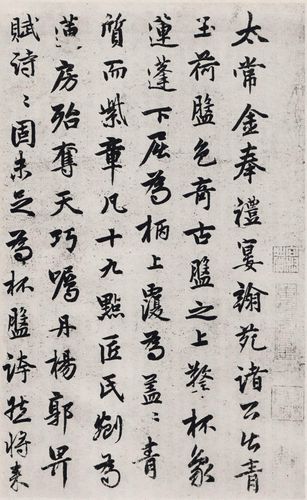 太常金奉禮宴翰苑諸公出青
玉荷盤色奇古盤之上鑿杯象
蓮蓬下屈為柄上覆為蓋〻青
質而紫章凡十九點匠氏剜為
房殆奪天巧嘱丹楊郭畀
賦詩〻固未足為杯盤誇然將来